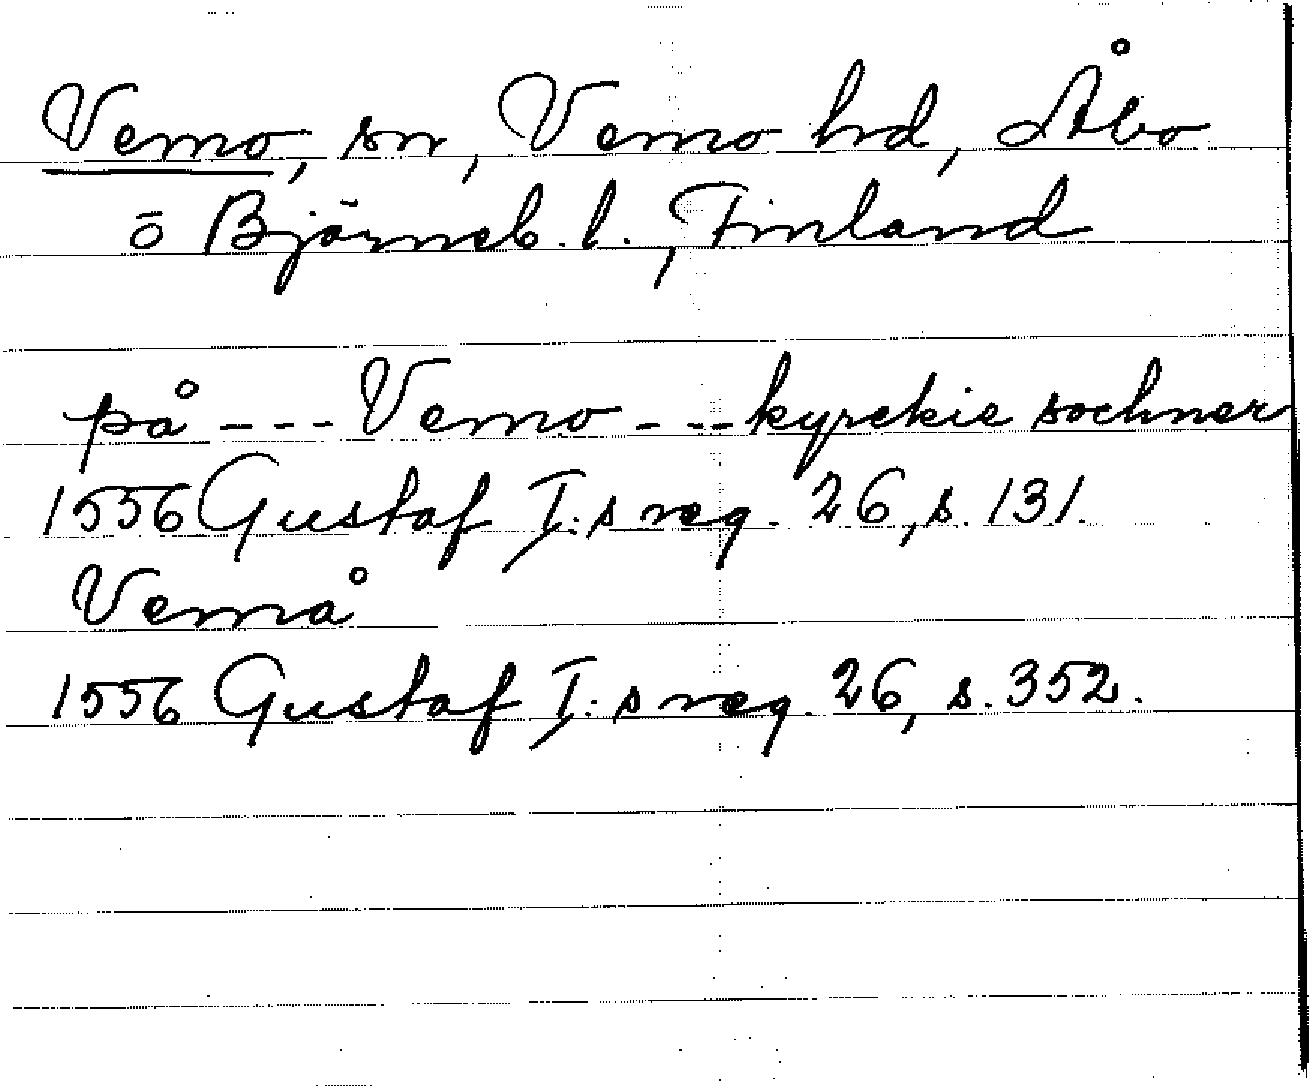 Vemo, sn, Vemo hd, Åbo
ō Björneb. l., Finland
på --- Vemo --- kyrckie sochner
1556 Gustaf I:s reg. 26, s. 131.
Vemå
1556 Gustaf I:s reg. 26, s. 352.